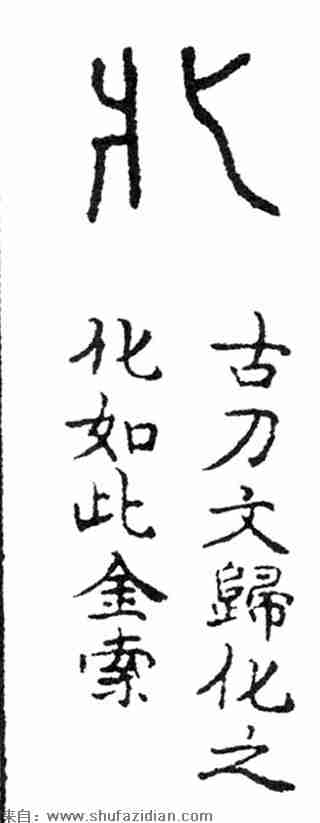 古刀文歸化之
化如此金索
来自：www.shufazidian.com